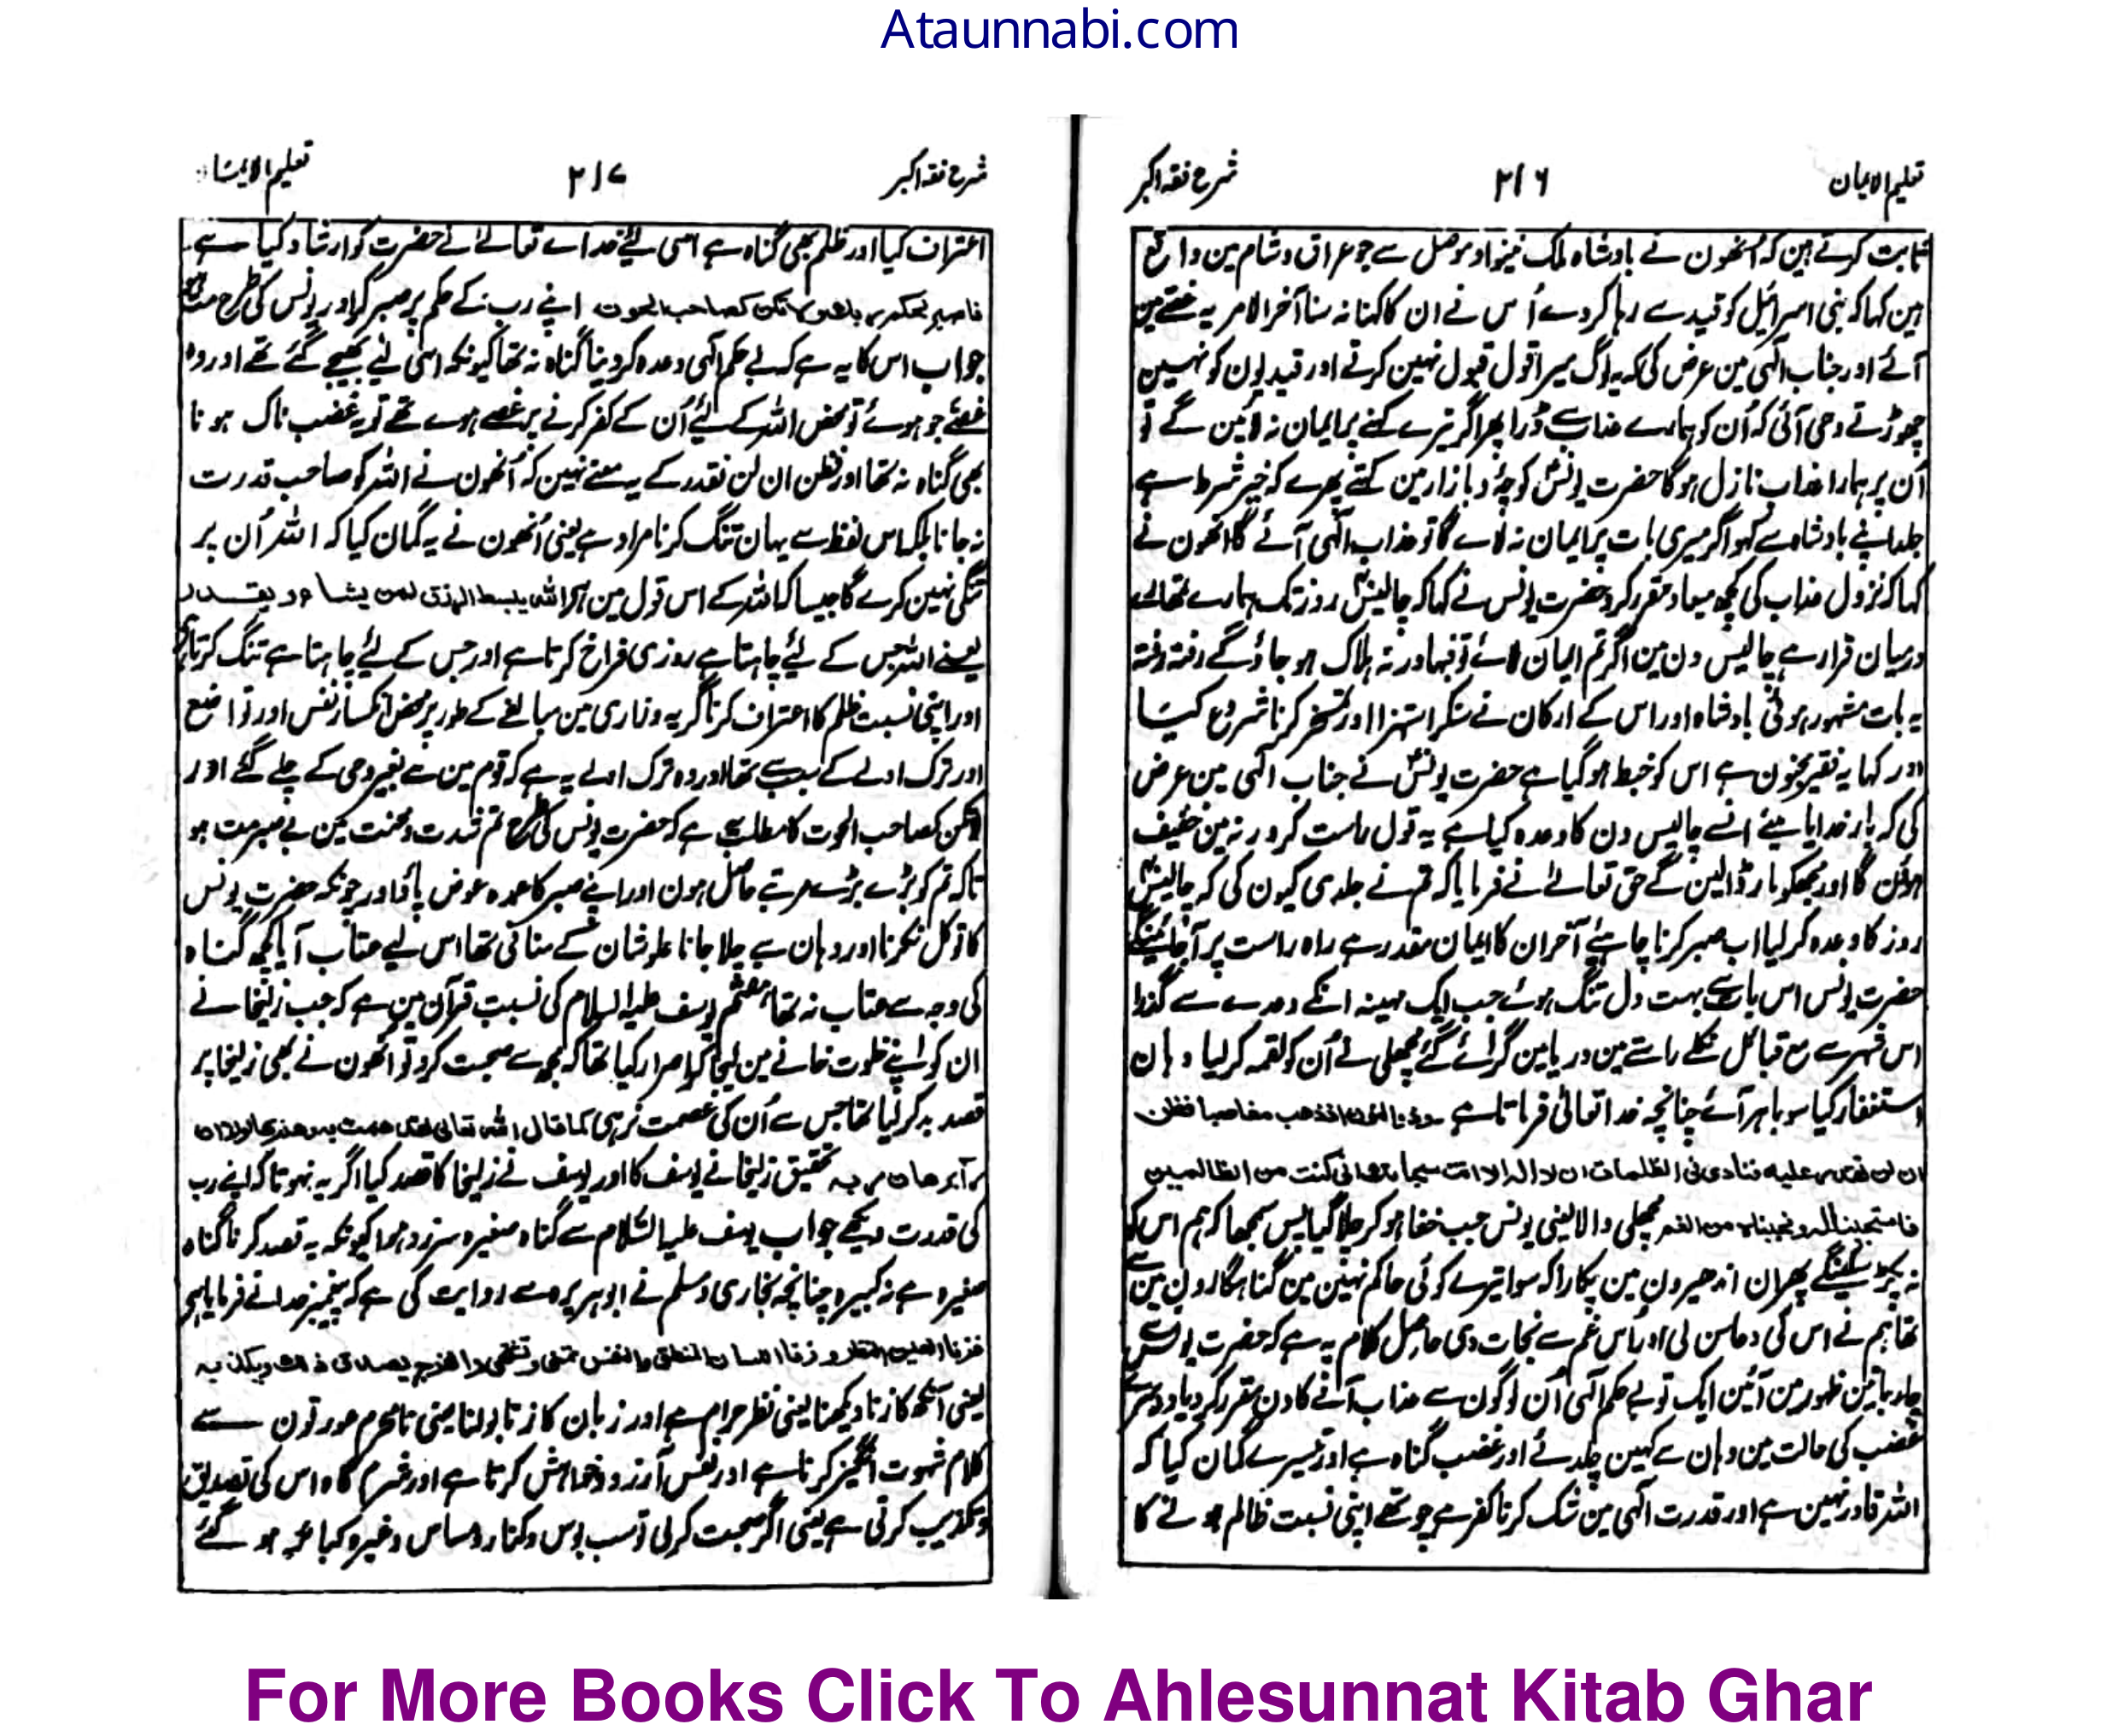 Ataunnabi.com
تعلیم الایمان ۲۱۶ شرح فقہ اکبر
ثابت کرتے ہین کہ اُنھون نے بادشاہ ملک نینوا و موصل سے جو عراق و شام مین واقع
ہین کہا کہ بنی اسرائیل کو قید سے رہا کر دے اُس نے ان کا کہنا نہ سنا آخر الامر یہ غصے مین
آئے اور جناب الٰہی مین عرض کی کہ یہ لوگ میرا قول قبول نہین کرتے اور قیدیون کو نہین
چھوڑتے وحی آئی کہ اُن کو ہمارے عذاب سے ڈرا پھر اگر تیرے کہنے پر ایمان نہ لائین گے تو
اُن پر ہمارا عذاب نازل ہوگا حضرت یونسؑ کوچہ و بازار مین کہتے پھرے کہ خیر شرط ہے
جلد اپنے بادشاہ سے کہو اگر میری بات پر ایمان نہ لاے گا تو عذاب الٰہی آئے گا انھون نے
کہا کہ نزول عذاب کی کچھ میعاد مقرر کرو حضرت یونس نے کہا کہ چالیس روز تک ہمارے تمھارے
درمیان قرار ہے چالیس دن مین اگر تم ایمان لائے تو فبہا ورنہ ہلاک ہو جاؤگے رفتہ رفتہ
یہ بات مشہور ہوئی بادشاہ اور اس کے ارکان نے سنکر استہزا اور تمسخر کرنا شروع کیا
اور کہا یہ فقیر مجنون ہے اس کو خبط ہو گیا ہے حضرت یونسؑ نے جناب الٰہی مین عرض
کی کہ بار خدایا مینے انسے چالیس دن کا وعدہ کیا ہے یہ قول راست کر ورنہ مین خفیف
ہوؤن گا اور مجھکو مار ڈالین گے حق تعالےٰ نے فرمایا کہ تم نے جلدی کیون کی کہ چالیس
روز کا وعدہ کر لیا اب صبر کرنا چاہیے آخر ان کا ایمان مقدر ہے راہ راست پر آجائینگے
حضرت یونس اس بات سے بہت دل تنگ ہوئے جب ایک مہینہ انکے وعدے سے گذرا
اس شہر سے مع قبائل نکلے راستے مین دریا مین گرائے گئے مچھلی نے اُن کو لقمہ کر لیا وہان
استغفار کیا سو باہر آئے چنانچہ خدا تعالیٰ فرماتا ہے وذا النون اذ ذهب مغاضبا فظن
ان لن نقدر عليه فنادى فى الظلمات ان لا اله الا انت سبحانك انى كنت من الظالمين
فاستجبنا له ونجيناه من الغم مچھلی والا یعنی یونس جب خفا ہو کر چلا گیا پس سمجھا کہ ہم اس کو
نہ پکڑ سکینگے پھر ان اندھیرون مین پکارا کہ سوا تیرے کوئی حاکم نہین مین گناہگارون مین سے
تھا ہم نے اس کی دعا سن لی اور اُس غم سے نجات دی حاصل کلام یہ ہے کہ حضرت یونس سے
چار باتین ظہور مین آئین ایک تو بے حکم الٰہی اُن لوگون سے عذاب آنے کا دن مقرر کر دیا دوسرے
غضب کی حالت مین وہان سے کہین چلدئے اور غضب گناہ ہے اور تیسرے گمان کیا کہ
اللہ قادر نہین ہے اور قدرت الٰہی مین شک کرنا کفر ہے چوتھے اپنی نسبت ظالم ہونے کا
شرح فقہ اکبر ۲۱۷ تعلیم الایمان
اعتراف کیا اور ظلم بھی گناہ ہے اسی لئے خداے تعالےٰ نے حضرت کو ارشاد کیا ہے
فاصبر لحكم ربك ولا تكن كصاحب الحوت اپنے رب کے حکم پر صبر کر اور یونس کی طرح مت ہو
جواب اس کا یہ ہے کہ بے حکم الٰہی وعدہ کر دینا گناہ نہ تھا کیونکہ اسی لیے بھیجے گئے تھے اور وہ
غصے جو ہوئے تو محض اللہ کے لئے اُن کے کفر کرنے پر غصے ہوے تھے تو یہ غضب ناک ہونا
بھی گناہ نہ تھا اور فظن ان لن نقدر کے یہ معنے نہین کہ اُنھون نے اللہ کو صاحب قدرت
نہ جانا بلکہ اس لفظ سے یہان تنگ کرنا مراد ہے یعنی اُنھون نے یہ گمان کیا کہ اللہ اُن پر
تنگی نہین کرے گا جیسا کہ اللہ کے اس قول مین ہے الله يبسط الرزق لمن يشاء ويقدر
یعنے اللہ جس کے لئے چاہتا ہے روزی فراخ کرتا ہے اور جس کے لئے چاہتا ہے تنگ کرتا ہے
اور اپنی نسبت ظلم کا اعتراف کرنا گریہ و زاری مین مبالغے کے طور پر محض انکسار نفس اور تواضع
اور ترک اولے کے سبب سے تھا اور وہ ترک اولے یہ ہے کہ قوم مین سے بغیر وحی کے چلے گئے اور
لاتکن کصاحب الحوت کا مطلب یہ ہے کہ حضرت یونس کی طرح تم شدت و محنت مین بے صبر مت ہو
تاکہ تم کو بڑے بڑے مرتبے حاصل ہون اور اپنے صبر کا عمدہ عوض پاؤ اور چونکہ حضرت یونس
کا توکل نکرنا اور وہان سے چلا جانا علو شان کے منافی تھا اس لیے عتاب آیا کچھ گناہ
کی وجہ سے عتاب نہ تھا ہشتم یوسف علیہ السلام کی نسبت قرآن مین ہے کہ جب زلیخا نے
ان کو اپنے خلوت خانے مین لیجا کر اصرار کیا تھا کہ مجھ سے صحبت کرو تو اُنھون نے بھی زلیخا پر
قصد بد کر لیا تھا جس سے اُن کی عصمت نرہی کما قال الله تعالى لقد همت به وهم بها لولا ان
رآ برهان ربه تحقیق زلیخا نے یوسف کا اور یوسف نے زلیخا کا قصد کیا اگر یہ نہوتا کہ اپنے رب
کی قدرت دیکھے جواب یوسف علیہ السّلام سے گناہ صغیرہ سرزد ہوا کیونکہ یہ قصد کرنا گناہ
صغیرہ ہے نہ کبیرہ چنانچہ بخاری و مسلم نے ابوہریرہ سے روایت کی ہے کہ پیغمبر خدا نے فرمایا ہے
فزنا العين النظر وزنا اللسان المنطق والنفس تمنى وتشتهى والفرج يصدق ذلك ويكذبه
یعنی آنکھ کا زنا دیکھنا یعنی نظر حرام ہے اور زبان کا زنا بولنا یعنی نامحرم عورتون سے
کلام شہوت انگیز کرنا ہے اور نفس آرزو و خواہش کرتا ہے اور شرم گاہ اس کی تصدیق
و تکذیب کرتی ہے یعنی اگر صحبت کر لی تو سب بوس و کنار و مساس وغیرہ کبائر ہو گئے
For More Books Click To Ahlesunnat Kitab Ghar